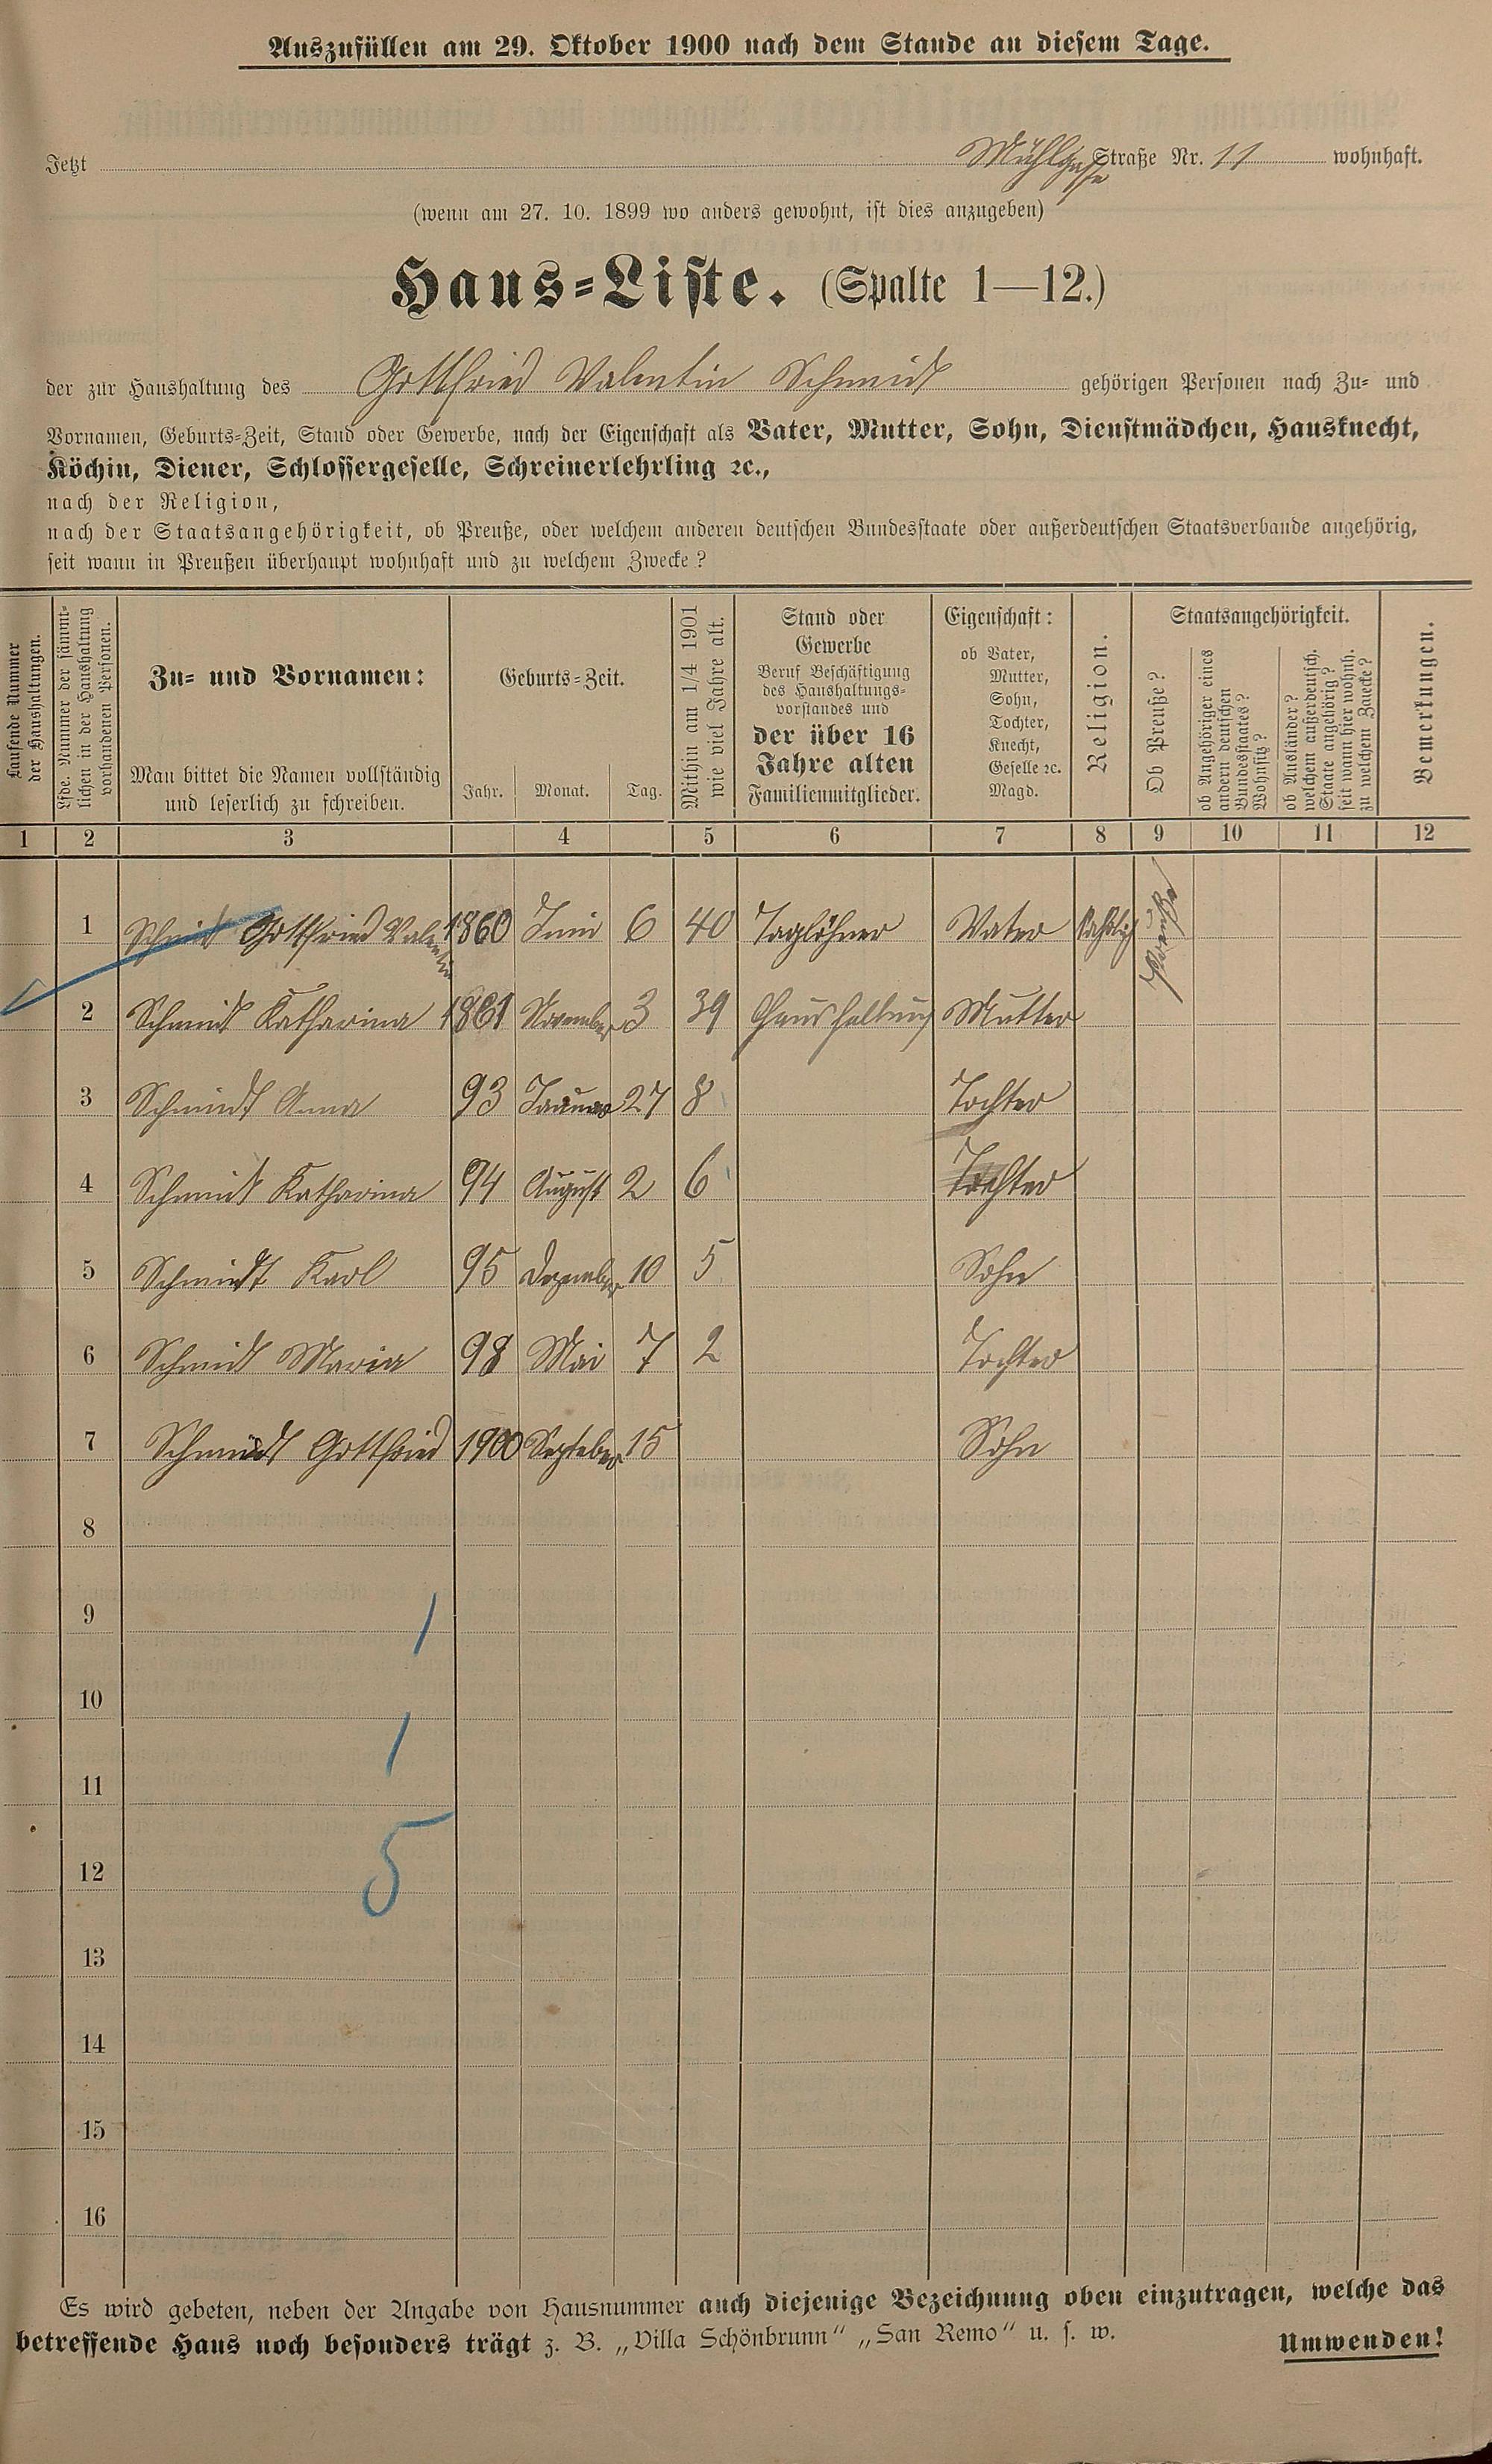 Auszufüllen am 29. Oktober 1900 nach dem Stande an diesem Tage.
Jetzt Mühlgasse Straße Nr. 11 wohnhaft.
(wenn am 27. 10. 1899 wo anders gewohnt, ist dies anzugeben)
Haus-Liste. (Spalte 1—12.)
der zur Haushaltung des Gottfried Valentin Schmidt gehörigen Personen nach Zu- und
Vornamen, Geburts-Zeit, Stand oder Gewerbe, nach der Eigenschaft als Vater, Mutter, Sohn, Dienstmädchen, Hausknecht,
Köchin, Diener, Schlossergeselle, Schreinerlehrling ꝛc.,
nach der Religion,
nach der Staatsangehörigkeit, ob Preuße, oder welchem anderen deutschen Bundesstaate oder außerdeutschen Staatsverbande angehörig,
seit wann in Preußen überhaupt wohnhaft und zu welchem Zwecke?
Laufende Nummer
der Haushaltungen.
Lfde. Nummer der sämmt-
lichen in der Haushaltung
vorhandenen Personen.
Zu- und Vornamen:
Man bittet die Namen vollständig
und leserlich zu schreiben.
Geburts-Zeit.
Jahr. Monat. Tag.
Mithin am 1/4 1901
wie viel Jahre alt.
Stand oder
Gewerbe
Beruf Beschäftigung
des Haushaltungs-
vorstandes und
der über 16
Jahre alten
Familienmitglieder.
Eigenschaft:
ob Vater,
Mutter,
Sohn,
Tochter,
Knecht,
Geselle ꝛc.
Magd.
Religion.
Staatsangehörigkeit.
Ob Preuße?
ob Angehöriger eines
andern deutschen
Bundesstaates?
Wohnsitz?
ob Ausländer?
welchem außerdeutsch.
Staate angehörig?
seit wann hier wohnh.
zu welchem Zwecke?
Bemerkungen.
1 2 3 4 5 6 7 8 9 10 11 12
1 Schmidt Gottfried Valentin 1860 Juni 6 40 Taglöhner Vater Kathlich Preuße
2 Schmidt Katharina 1861 November 3 39 Haushaltung Mutter
3 Schmidt Anna 93 Januar 27 8 Tochter
4 Schmidt Katharina 94 August 2 6 Tochter
5 Schmidt Karl 95 Dezember 10 5 Sohn
6 Schmidt Maria 98 Mai 7 2 Tochter
7 Schmidt Gottfried 1900 September 15 Sohn
8
9 1
10
11 1
12 5
13
14
15
16
Es wird gebeten, neben der Angabe von Hausnummer auch diejenige Bezeichnung oben einzutragen, welche das
betreffende Haus noch besonders trägt z. B. „Villa Schönbrunn“ „San Remo“ u. s. w. Umwenden!